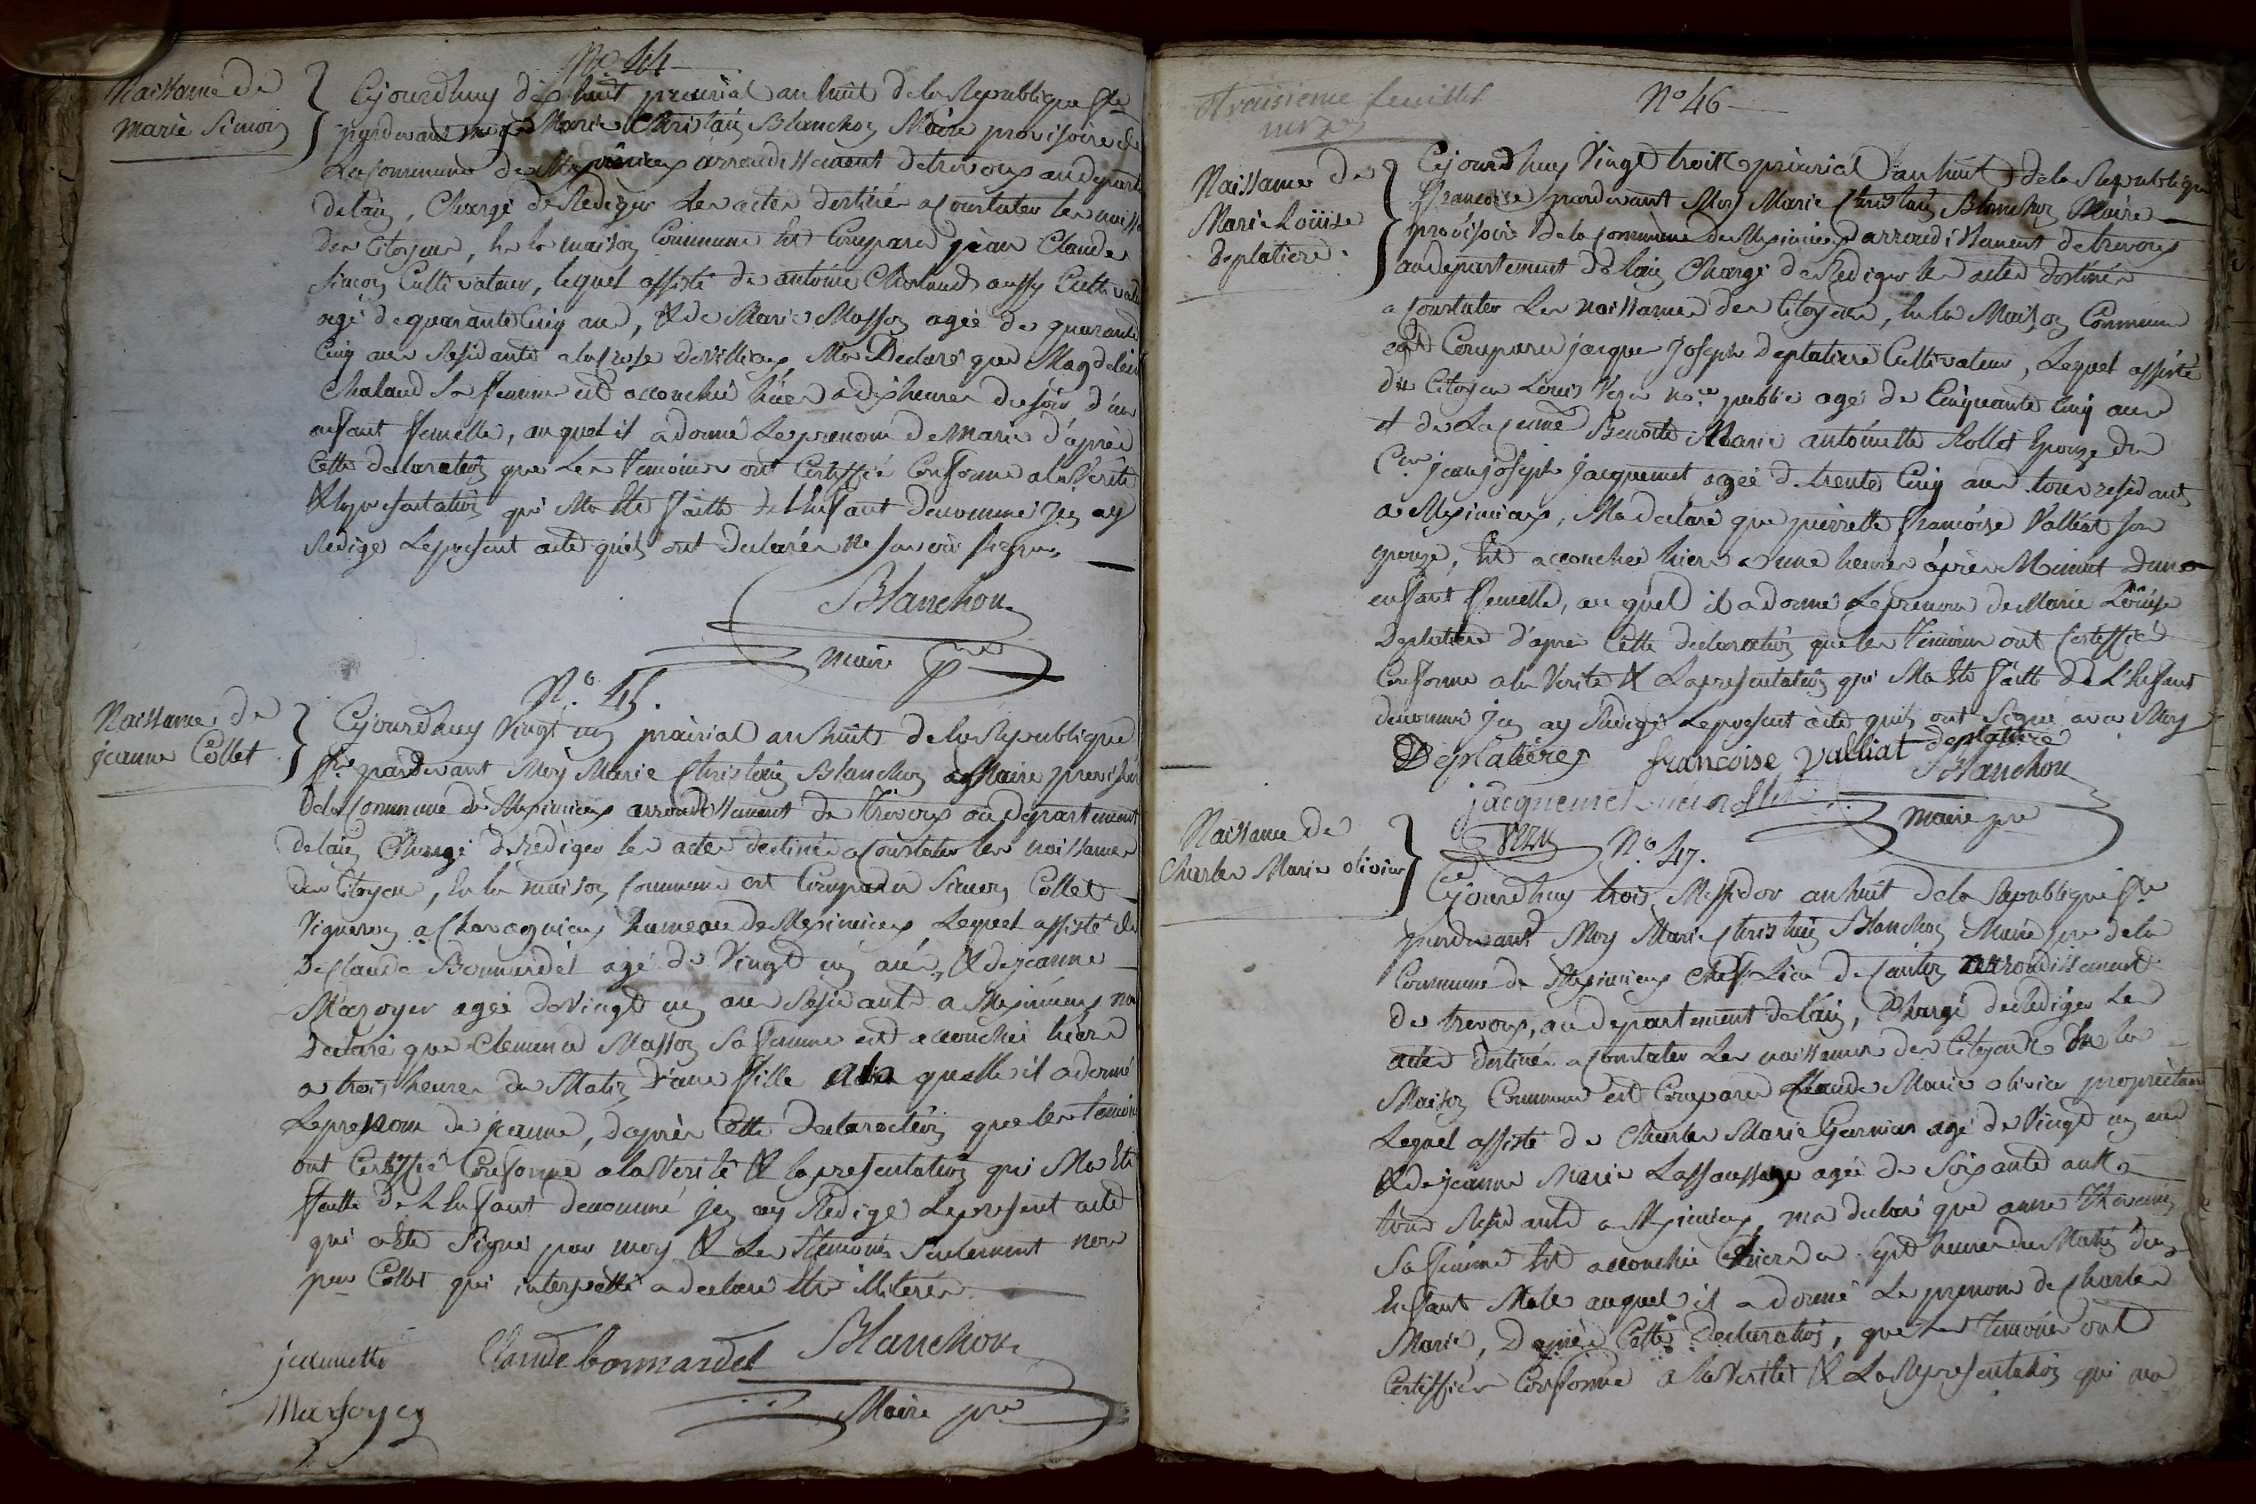 N.º 44
Naissance de
Marie Simon
Cejourdhuy dix huit prairial an huit de la Republique fse
pardevant moy Marie Christain Blanchon Maire provisoire de
La Commune de Meximieux arrondissement de trevoux au depart
delain, Chargé de Rediger Les actes destinés a Constater les naiss
des Citoyens, En la maison Commune Est Comparu jean Claude
Simon Cultivateur, lequel assisté de antoine Chaland aussy Cultivat
agé de quarante Cinq ans, & de Marie Masson agée de quarante
Cinq ans Residants a La de Villieux Ma Declaré que Magdelein
Chaland Sa femme est accouchée hier a dix heures du soir d'un
enfant femelle, auquel il a donné Leprenom de Marie d'après
Cette declaration que Les Temoins ont Certiffié Conforme a la Verité
& la presentation qui Ma Eté faitte de L'Enfant denommé j'en ay
Redigé Lepresent acte quils ont declarés ne savoir signer
Blanchon
maire pre
N.º 45.
Naissance de
jeanne Collet
Cejourdhuy Vingt un prairial an huit de la Republique
fse pardevant Moy Marie Christain Blanchon Maire provisoir
de la Commune de Meximieux arrondissement de Trevoux au departement
delain Chargé de rediger les actes destinés a Constater les naissances
des Citoyens, En la maison Commune est Comparu Simon Collet
Vigneron a Chavagnieux hameau de Meximieux Lequel assisté de
De Claude Bonnardel agé de Vingt un ans, & de jeanne
Mazoyer agée de Vingt un ans Residants a Meximieux ma
Declaré que Clemence Masson Sa femme est accouchée hier
a trois heures du Matin d'une fille a la quelle il a donné
Leprenom de jeanne, d'après Cette declaration que les temoin
ont Certiffié Conforme a la Verité & la presentation qui Ma Eté
faitte de L'Enfant denommé j'en ay Redigé Lepresent acte
qui a Eté Signé par moy & Les Temoins Seulement non
par Collet qui interpellé a declaré Etre illiteré
jeannette Claude bonnardel Blanchon
Marsoyer Maire pre
troisieme feuillet
N.º 46
Naissance de
Marie Loüise
Deplatiere
Cejourdhuy Vingt trois prairial an huit de la Republique
francoise pardevant Moy Marie Christain Blanchon Maire
provisoire de la Commune de Meximieux arrondissement de trevoux
au departement de lain Chargé de Rediger les actes destinés
a Constater Les naissances des Citoyens, En la Maison Commune
est Comparu jacque joseph Deplatiere Cultivateur, Lequel assisté
du Citoyen Louis no.re public agé de Cinquante Cinq ans
et de La Benoite Marie antoinette Rollet Epouze du
C.en jean joseph jacquemet agée de trente Cinq ans tous residants
a Meximieux, Ma declaré que pierrette francoise Valliat son
epouze, Est accouchée hier a une heure après Minuit d'une
enfant femelle, au quel il a donné Leprenom de Marie Loüise
Deplatiere d'après Cette declaration que les Temoins ont Certiffié
Conforme a la Verité & La presentation qui Ma Eté faitte de L'Enfant
denommé j'en ay Redigé Lepresent acte quils ont Signé avec Moy
Deplatieres francoise valliat deplatiere
jacquemet née rollet Blanchon
maire pre
N.º 47.
Naissance de
Charles Marie olivier
Cejourdhuy trois Messidor an huit de la Republique fse
pardevant Moy Marie Christain Blanchon Maire pre de la
Commune de Meximieux Chef Lieu de Canton arrondissement
de trevoux, au departement de lain, Chargé de Rediger Les
actes destinés a Constater Les naissances des Citoyens En la
Maison Commune est Comparu Claude Marie olivier proprietaire
Lequel assisté de Charles Marie Garnier agé de Vingt un ans
& de jeanne Marie Lassaussaye agée de Soixante ans
tous Residants a Meximieux, ma declaré que anne Thevenin
Sa femme Est accouchée hier a Sept heures du Matin d'un
Enfant Male auquel il a donné Le prenom de Charles
Marie, D'apres Cette Declaration, que Les Temoins ont
Certiffiés Conforme a la Verité & La Representation qui ma